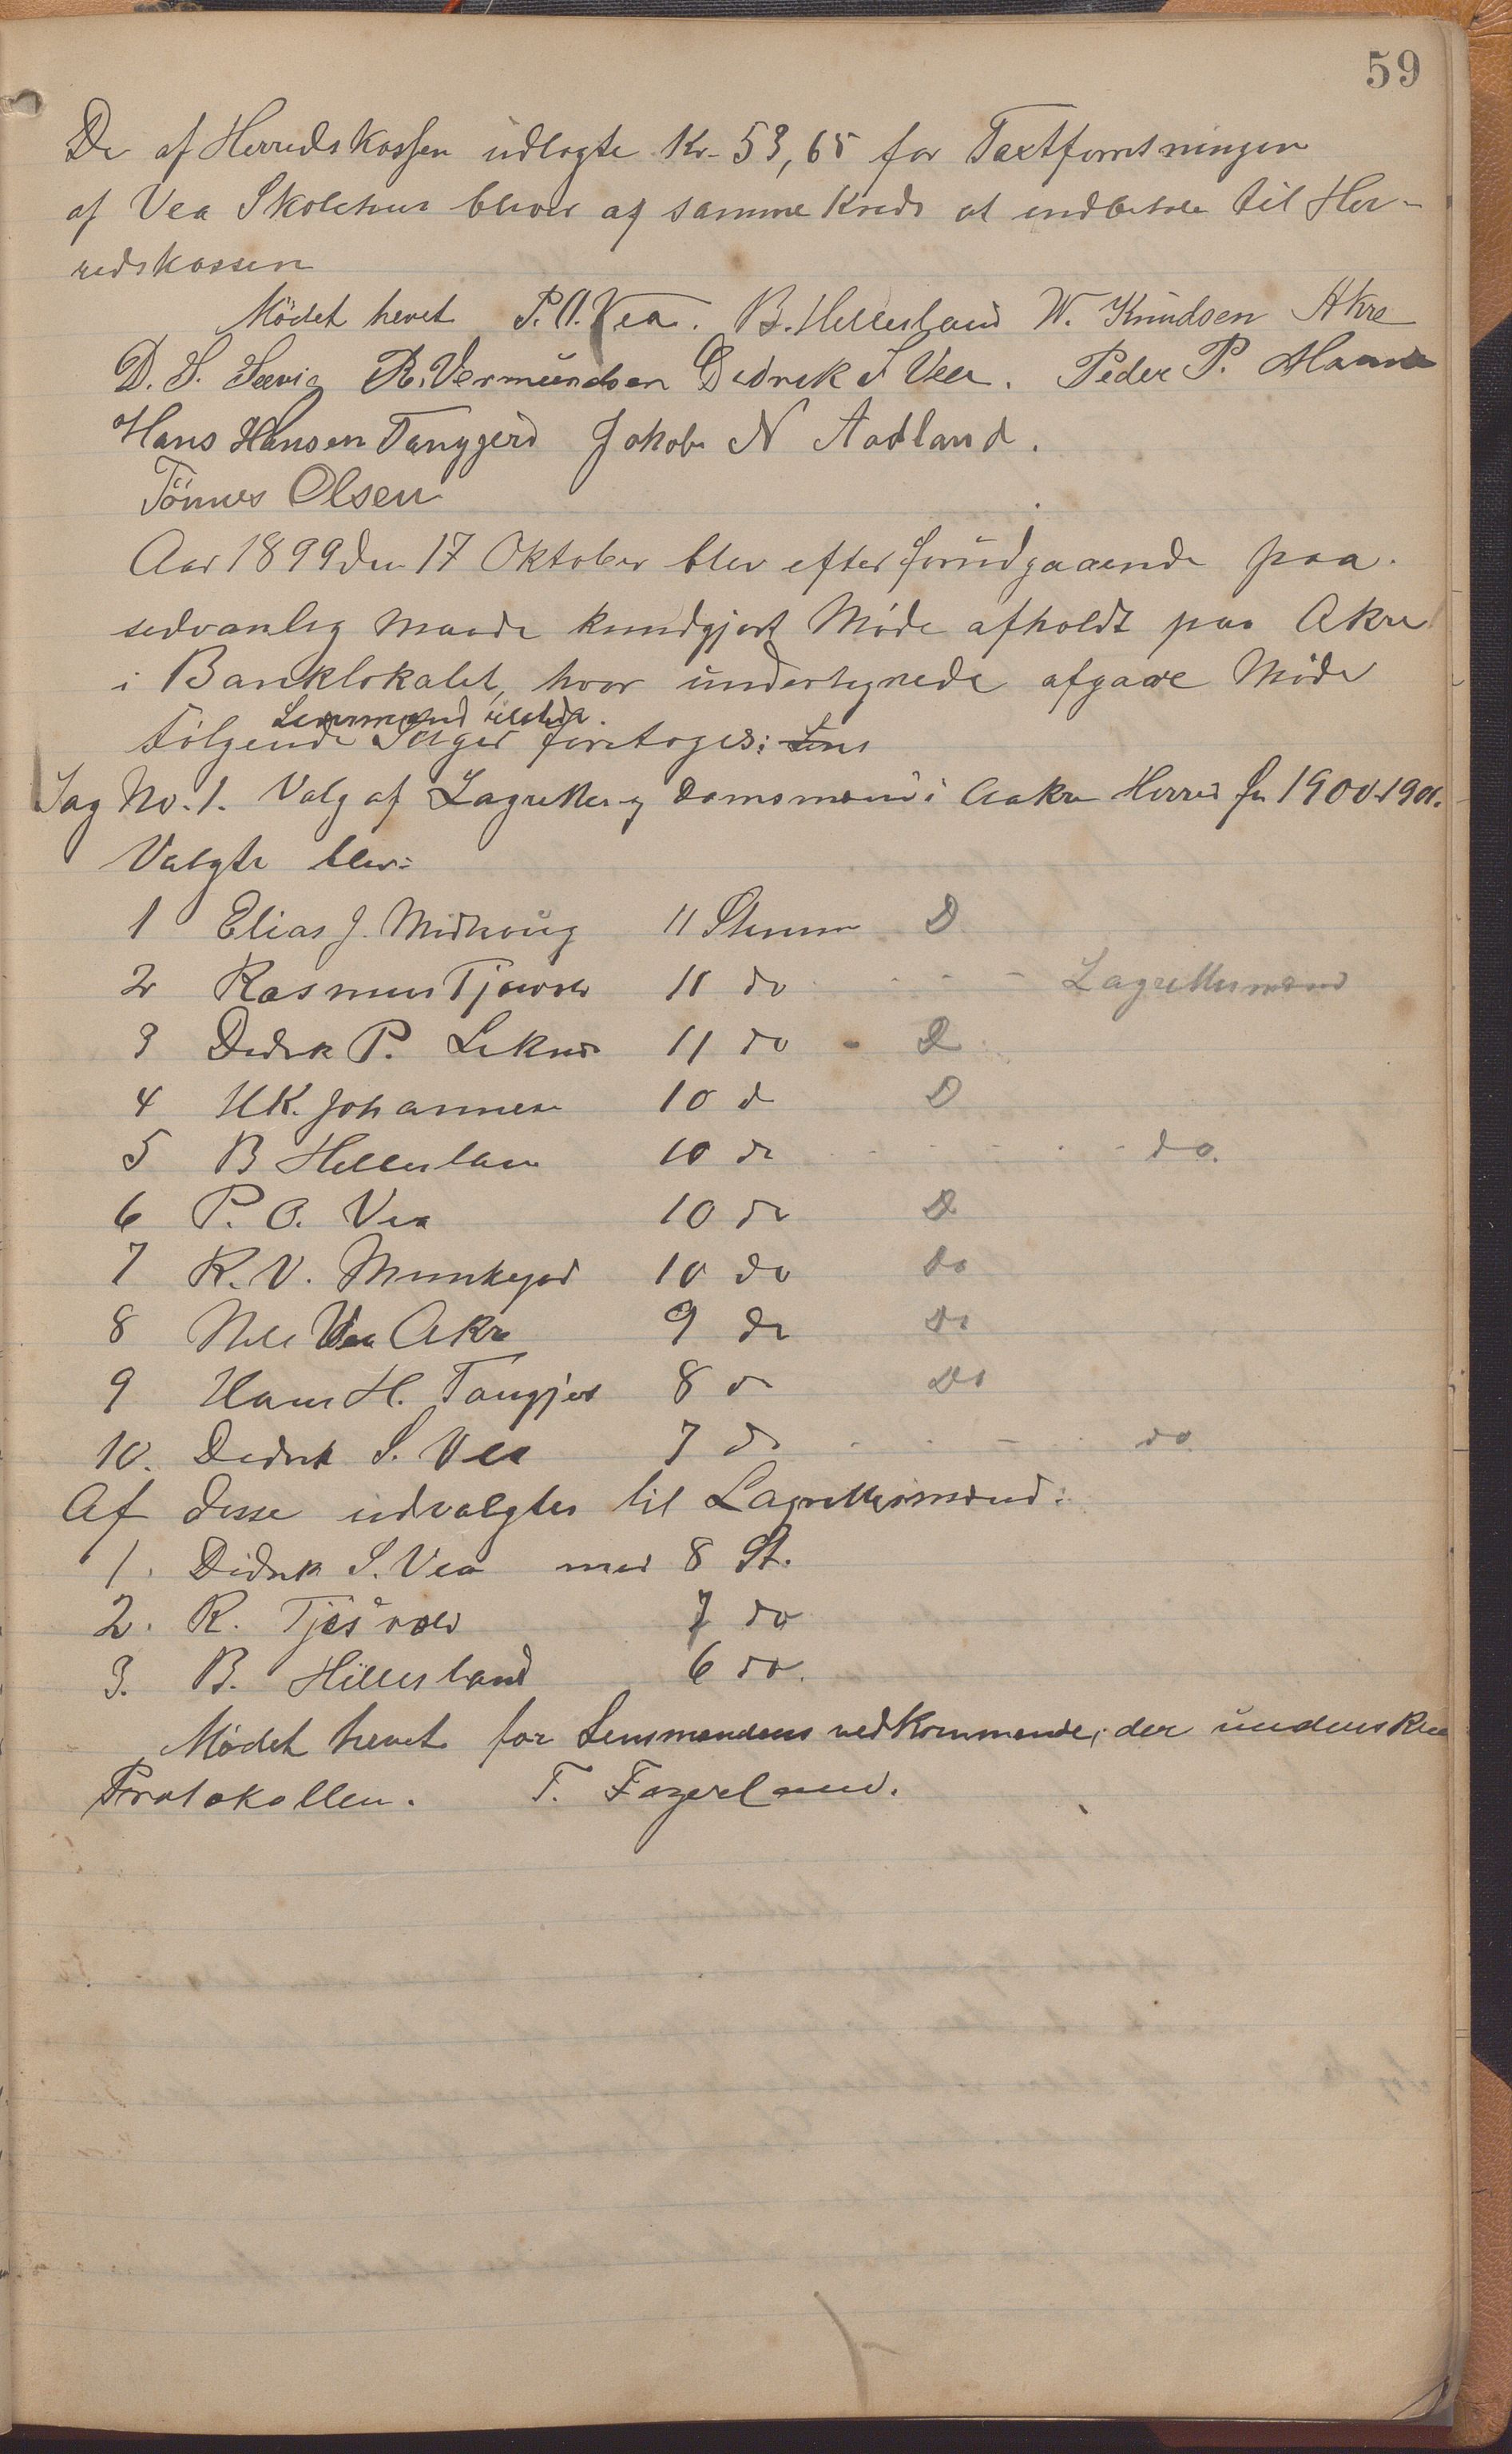 59
De af Herredskassen udlagte Kr. 53,65 for Taxtforretningen
af Vea Skolehus bliver af samme Kreds at indbetale til Her-
redskassen
Mødet hevet P. O. Vea. B. Hellesland W. Knudsen Akre
D. S. Sævig R. Vermundsen Didrik S Vea. Peder P.
Hans Hansen Tanggjerd Jakob N Aadland.
Tönnes Olsen
Aar 1899 den 17 Oktober blev efter forudgaaende paa
sedvanlig Maade kundgjort Møde afholdt paa Akre
i Banklokalet, hvor undertegnede afgave Møde
Lensmand tilstede.
Følgende Sager foretoges: Lens
Sag No. 1. Valg af Lagrettes og Domsmænd i Aakre Herred for 1900-1901.
Valgte blev:
1 Elias J. Midhaug 11 Stemmer D
2 Rasmus Tjøsvold 11 do - - - Lagrettesmænd
3 Didrik P. Liknes 11 do - D
4 H.K. Johannesen 10 do D
5 B Hellesland 10 do - - - do.
6 P. O. Vea 10 do D
7 R. V. Munkejord 10 do do
8 Nils Vea Akre 9 do Do
9 Hans H. Tangjerd 8 do Do
10. Didrik S. Vea 7 do - - - do
Af disse udvalgtes til Lagrettesmænd:
1. Didrik S. Vea med 8 St.
2. R. Tjøsvold 7 do
3. B. Hellesland 6 do.
Mødet hevet for Lensmandens vedkommende, der underskrev
Protokollen. T. Fagerland.